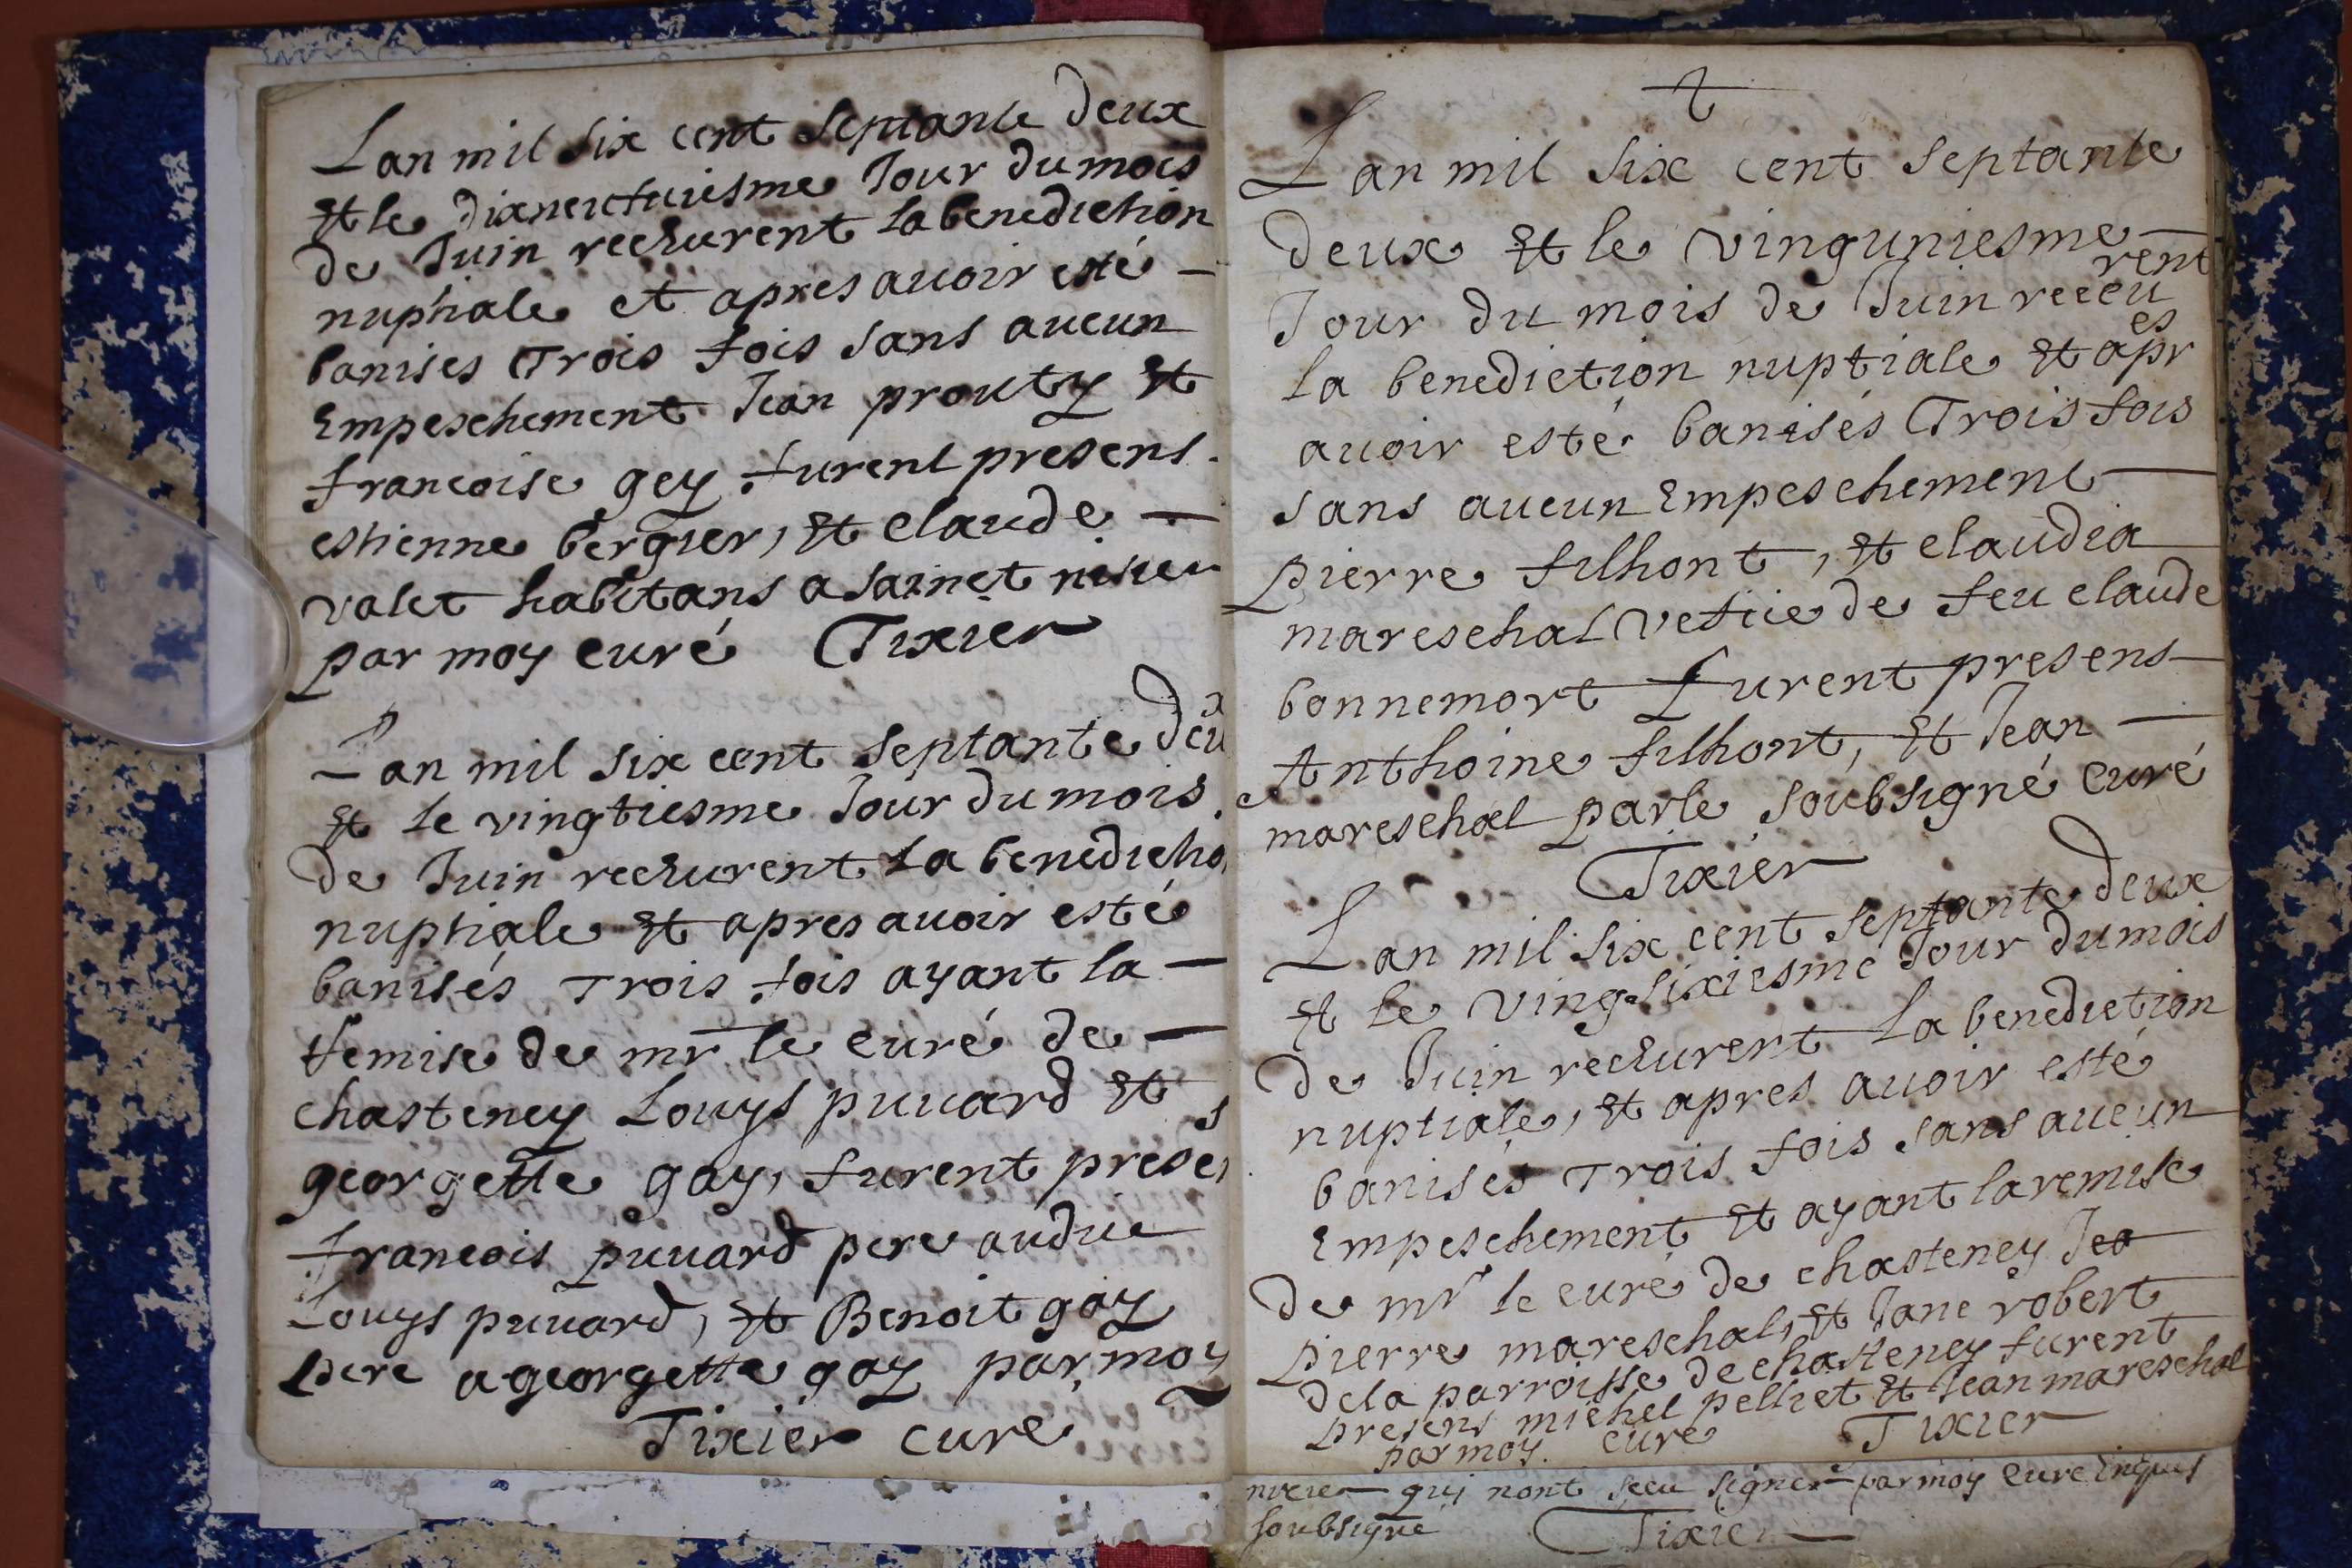 Lan mil six cent septante deux
et le dixneufuiesme Jour du mois
de Juin receurent la benediction
nuptiale et apres auoir esté -
banises Trois fois sans aucun
Empeschement Jean prouty et
francoise gey furent presens.
estienne bergier, et claude —
valet habitans a sainct
par moy curé Tixier
Lan mil six cent septante deux
et le vingtiesme Jour du mois
de Juin receurent la benedictio
nuptiale et apres auoir esté
banisés Trois fois ayant la -
remise de mr le curé de —
chasteney Louys puuard et
georgette gay, furent presens
francois puuard pere audue
Louys puuard, et Benoit gay
pere a georgette gay par moy
Tixier curé
Lan mil six cent septante
deux et le vinguniesme
Jour du mois de Juin receurent
la benediction nuptiale et apres
auoir esté banisés Trois fois
sans aucun Empeschement —
pierre filhont, et claudia
mareschal vefue de feu claude
bonnemort furent presens
Anthoine filhont, et Jean —
mareschal par le soubsigné curé
Tixier
Lan mil six cent septante deux
et le vingsixiesme Jour du mois
de Juin receurent la benediction
nuptiale, et apres auoir esté
banisés Trois fois sans aucun
Empeschement et ayant la remise
de mr le curé de chasteney Jea
pierre mareschal, et Jane robert
de la parroisse de chasteney furent
presens michel pelliet et Jean mareschal
par moy. curé Tixier
qui nont sceu signer par moy curé
soubsigné Tixier